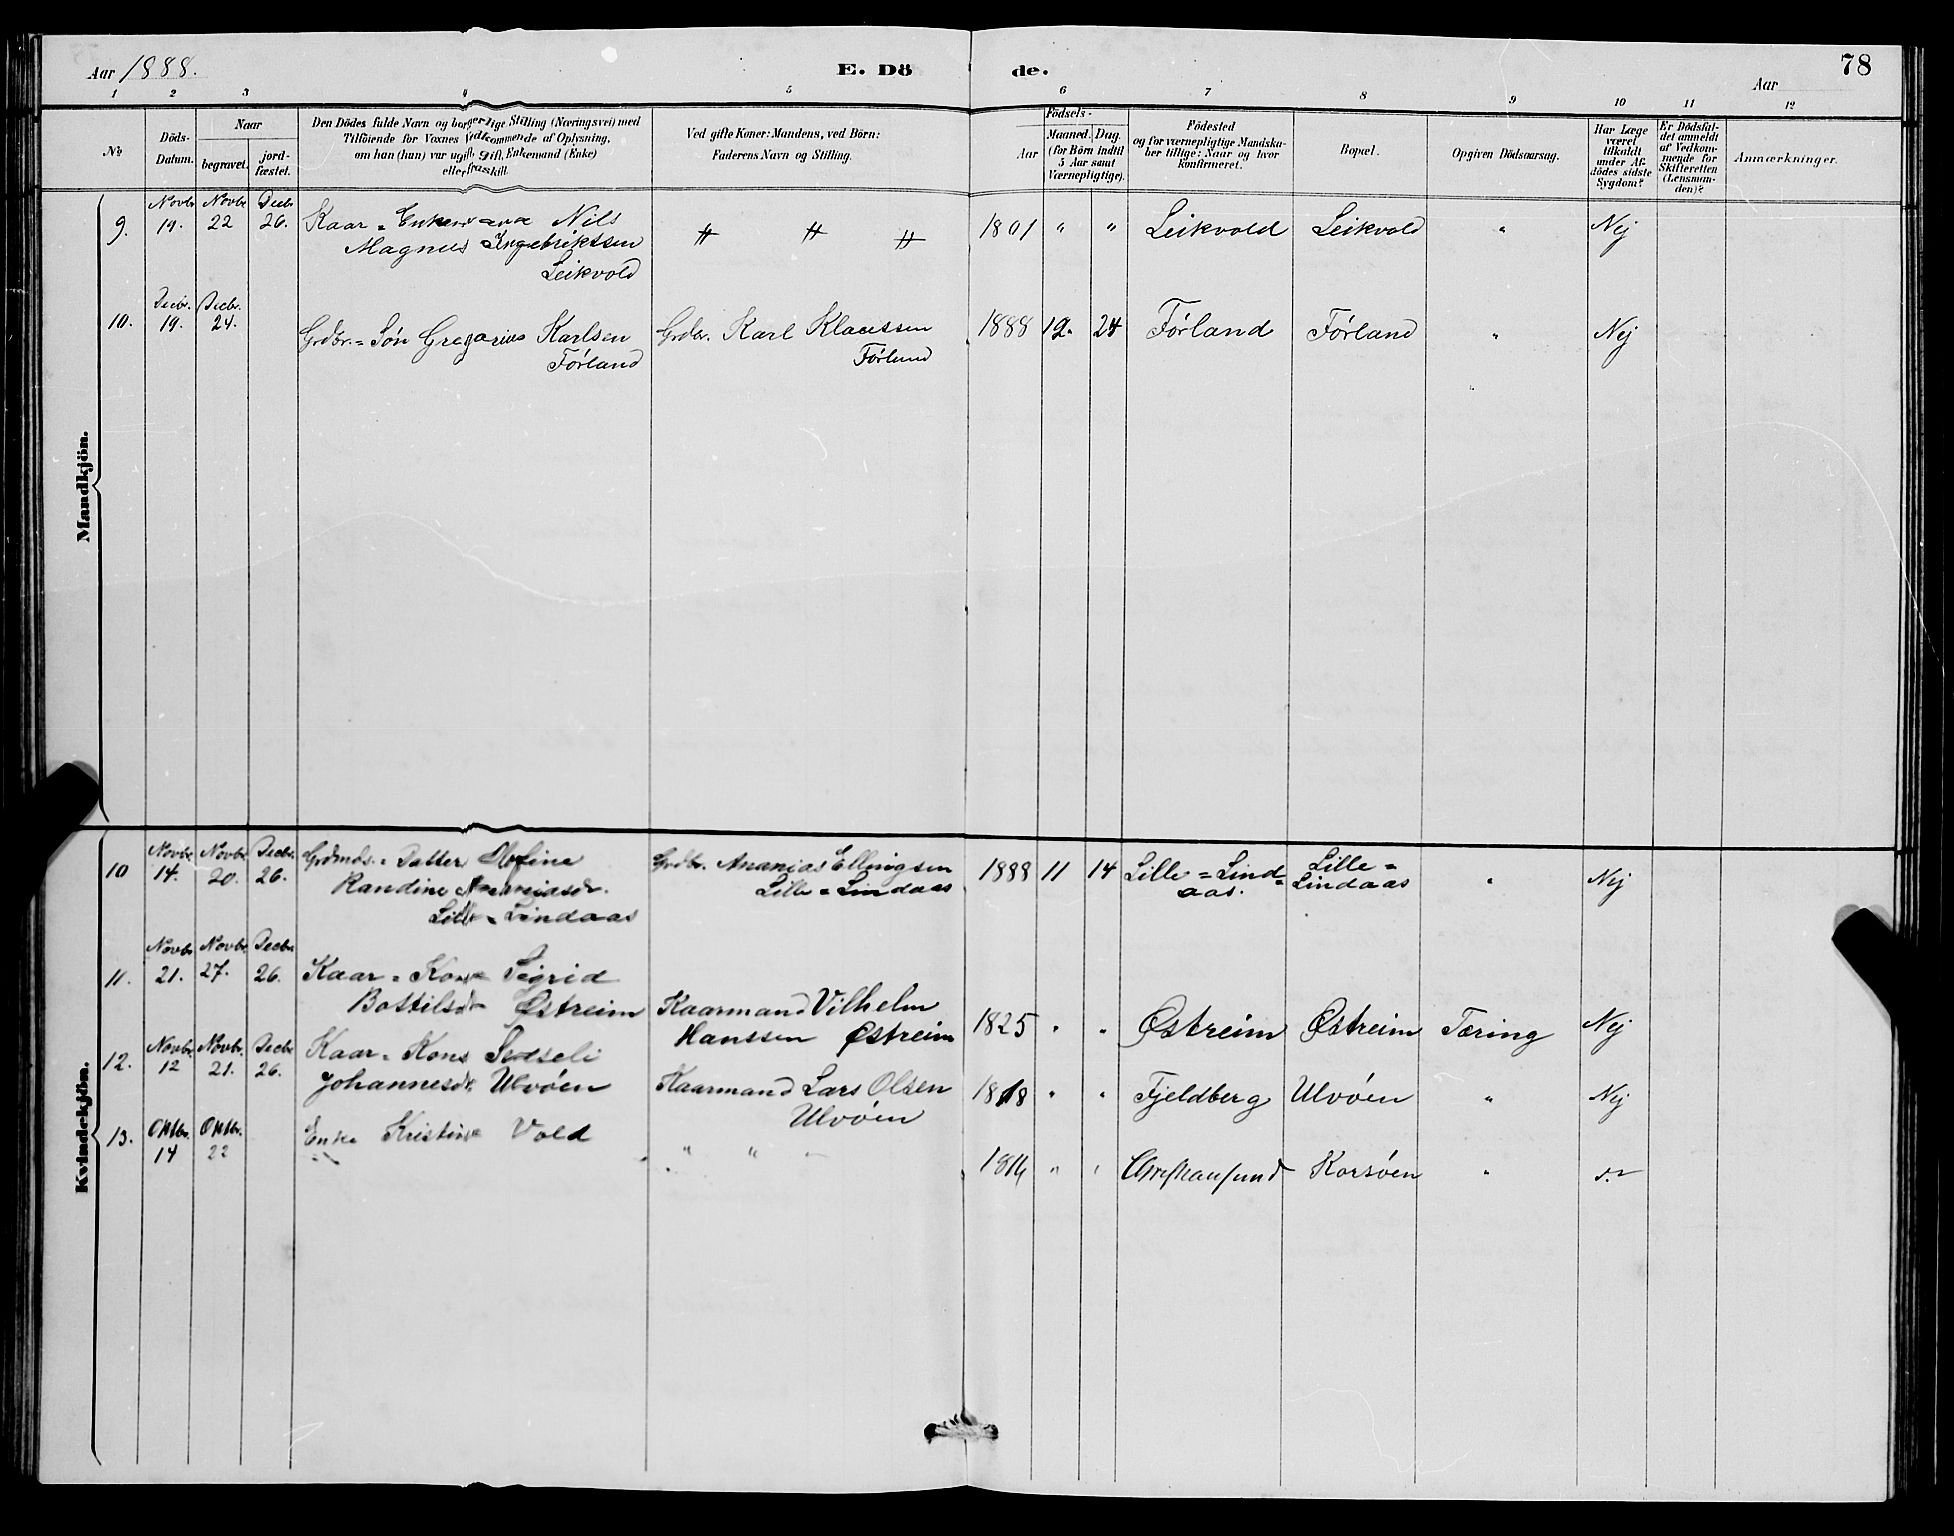 Aar 1888.
E. Dö
de.
Aar
78
1 2 3 4 5 6 7 8 9 10 11 12
No
Döds-
Datum.
Naar
begravet.
jord-
fæstet.
Den Dödes fulde Navn og borgerlige Stilling (Næringsvei) med
Tilföiende for Voxnes Vedkommende af Oplysning,
om han (hun) var ugift, gift, Enkemand (Enke)
eller fraskilt.
Ved gifte Koner: Mandens, ved Börn:
Faderens Navn og Stilling.
Födsels-
Aar
Maaned. Dag.
(for Börn indtil
5 Aar samt
Værnepligtige).
Födested
og for værnepligtige Mandska-
ber tillige: Naar og hvor
konfirmeret.
Bopæl.
Opgiven Dödsaarsag.
Har Læge
været
tilkaldt
under Af-
dödes sidste
Sygdom?
Er Dödsfal-
det anmeldt
af Vedkom-
mende for
Skifteretten
(Lensman-
den)?
Anmærkninger.
Mandkjön.
Novbr. Novbr. Decbr
9. 19. 22 26. Kaar = Enkemand Nils
Magnus Ingebriktsen
Leikvold
1801 " " Leikvold Leikvold " Nej
Decbr. Decbr.
10. 19. 24. Grdbr. = Søn Gregorius Karlsen
Førland
Grdbr. Karl Klaussen
Førland
1888 12. 24 Førland Førland " Nej
Kvindekjön.
Novbr. Novbr. Decbr.
10 14. 20. 26. Grdmds. = Datter
Randine Ananiasdr.
Lille = Lindaas
Grdbr. Ananias Ellingsen
Lille = Lindaas
1888 11 14 Lille = Lind=
aas.
Lille =
Lindaas
" Nej
Novbr. Novbr. Decbr.
11. 21. 27. 26. Kaar = Kone Sigrid
Bottilsdr Østreim
Kaarmand Vilhelm
Hanssen Østreim
1825 " " Østreim Østreim Tæring Nej
Novbr. Novbr. Decbr
12. 12 21. 26. Kaar = Kone Sidseli
Johannesdr. Ulvøen
Kaarmand Lars Olsen
Ulvøen
1818 " " Fjeldberg Ulvøen " Nej
Oktbr. Oktbr.
13. 14 22 Enke Kristine Vold
" "
1816 " " Christiansund Korsøen "